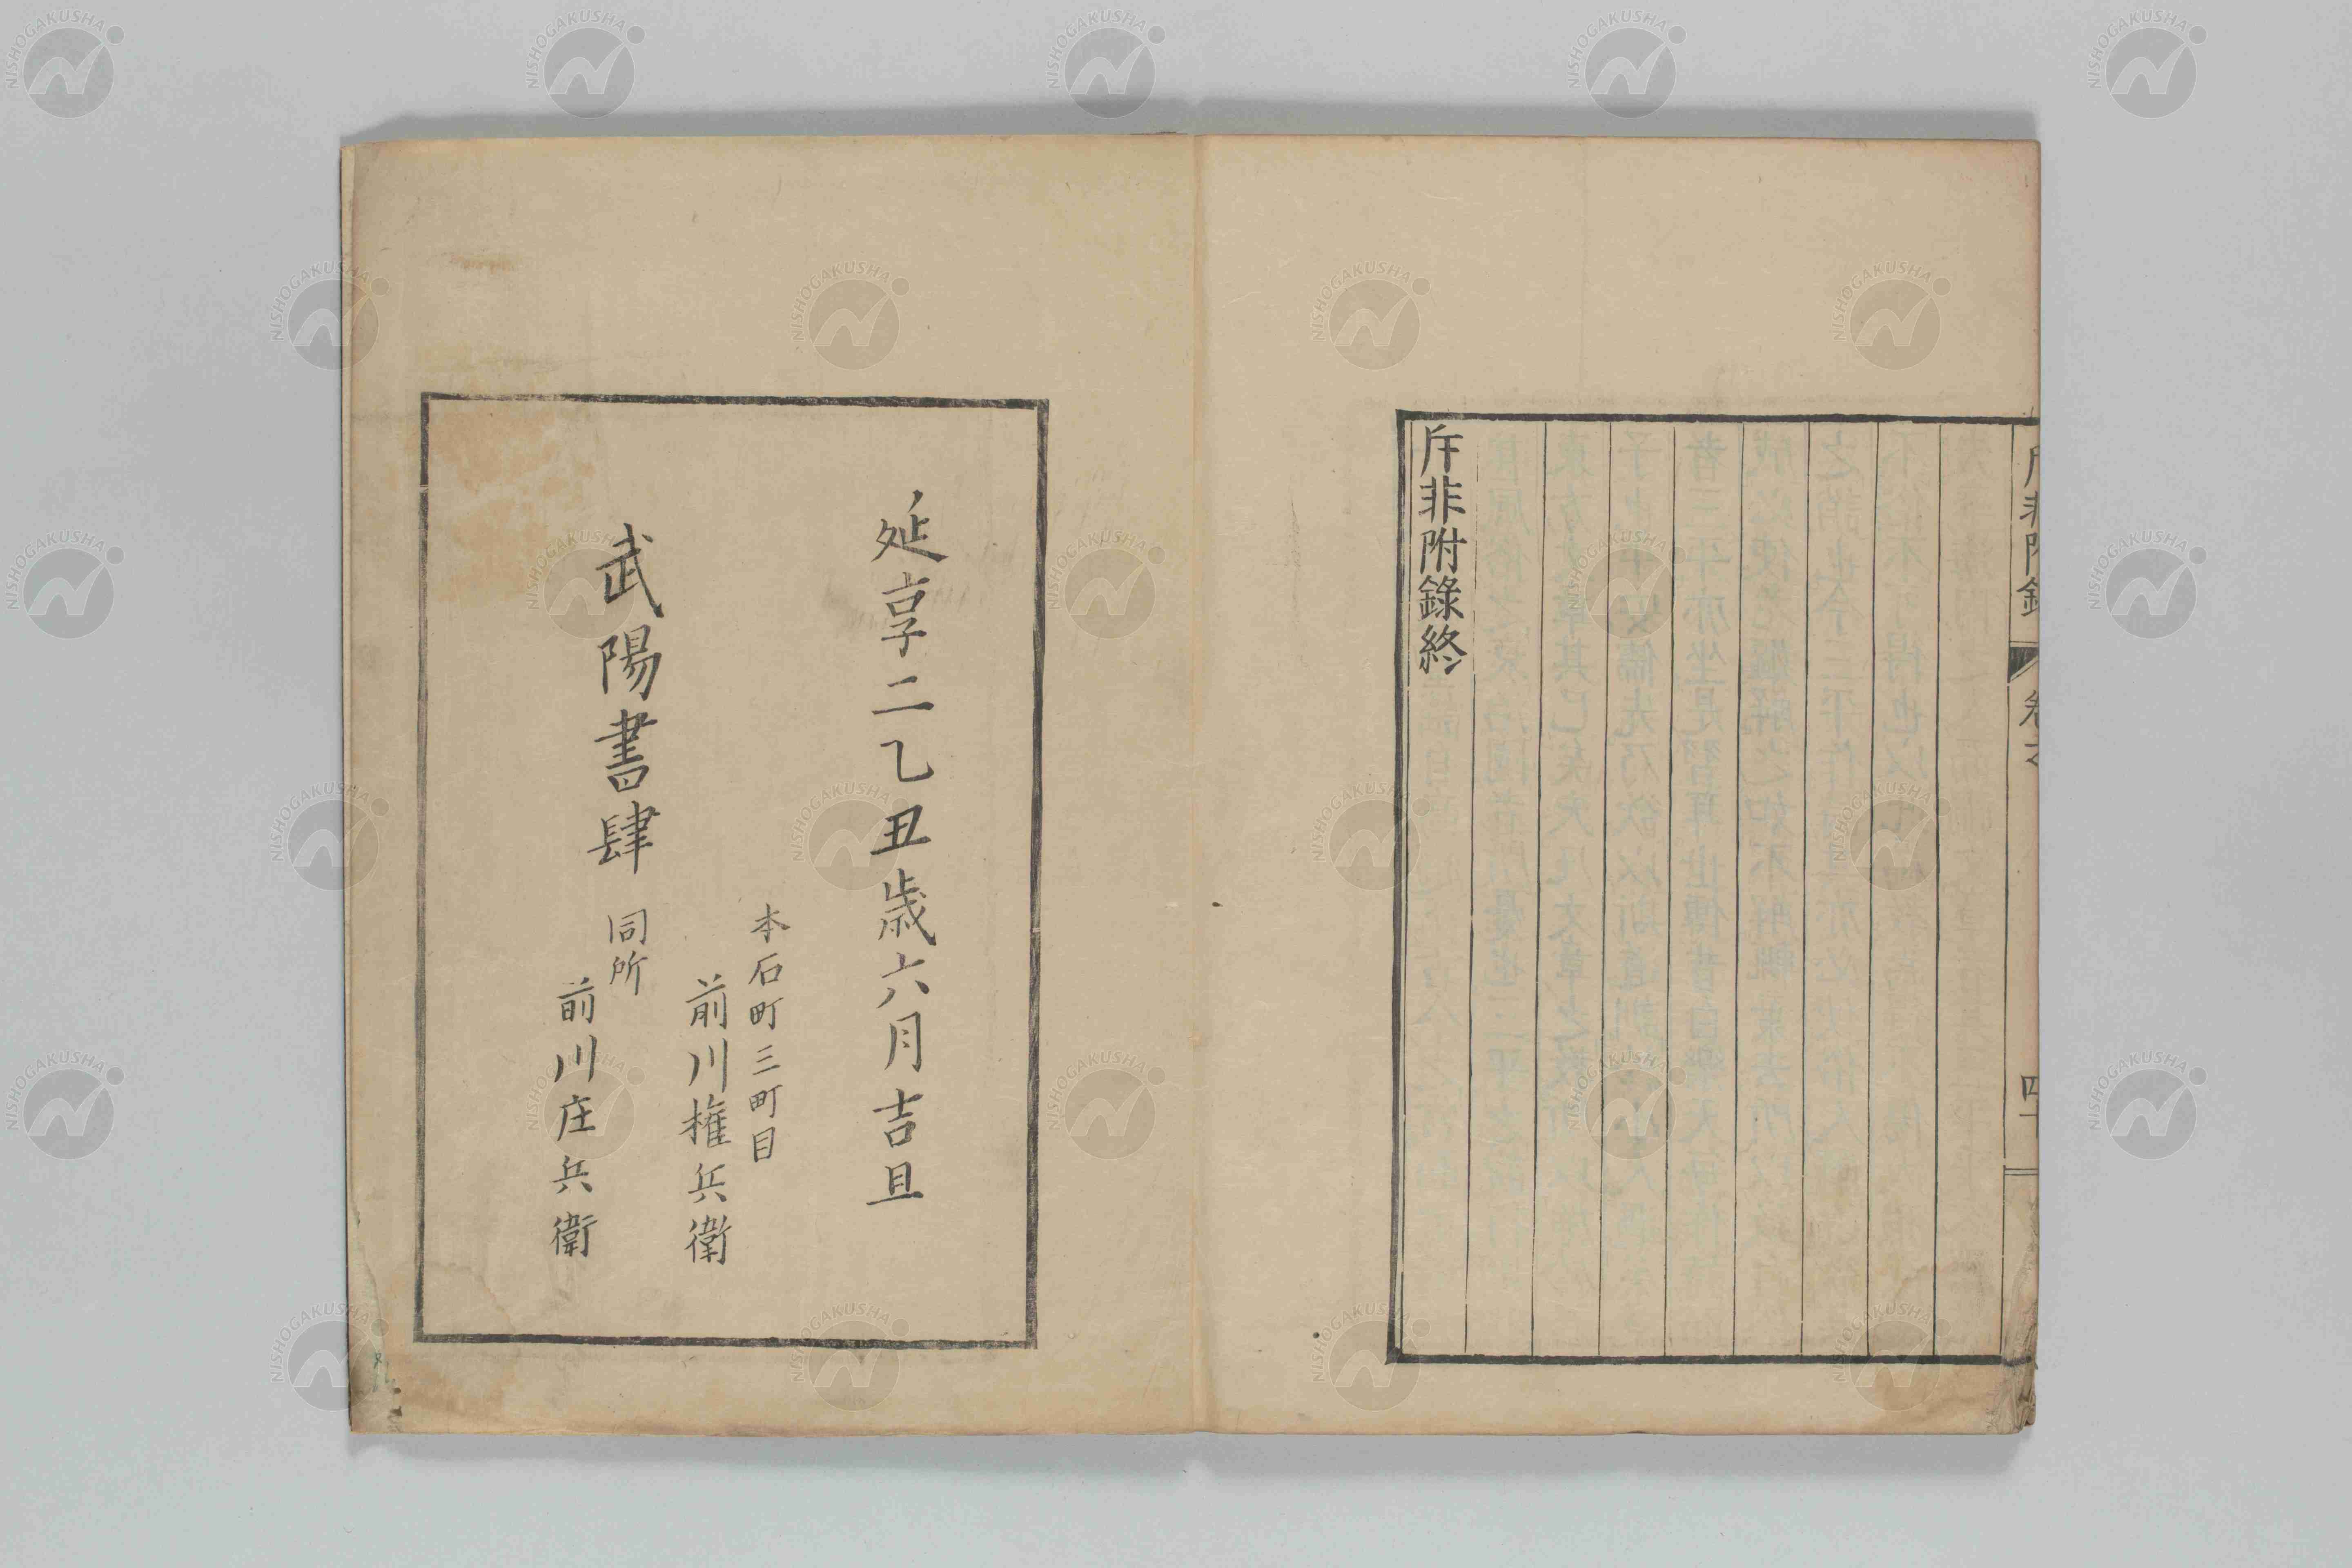 斥非附錄
斥非附錄終
延享二乙丑歳六月吉旦
武陽書肆
本石町三町目
前川権兵衛
同所
前川庄兵衛
NISHOGAKUSHA